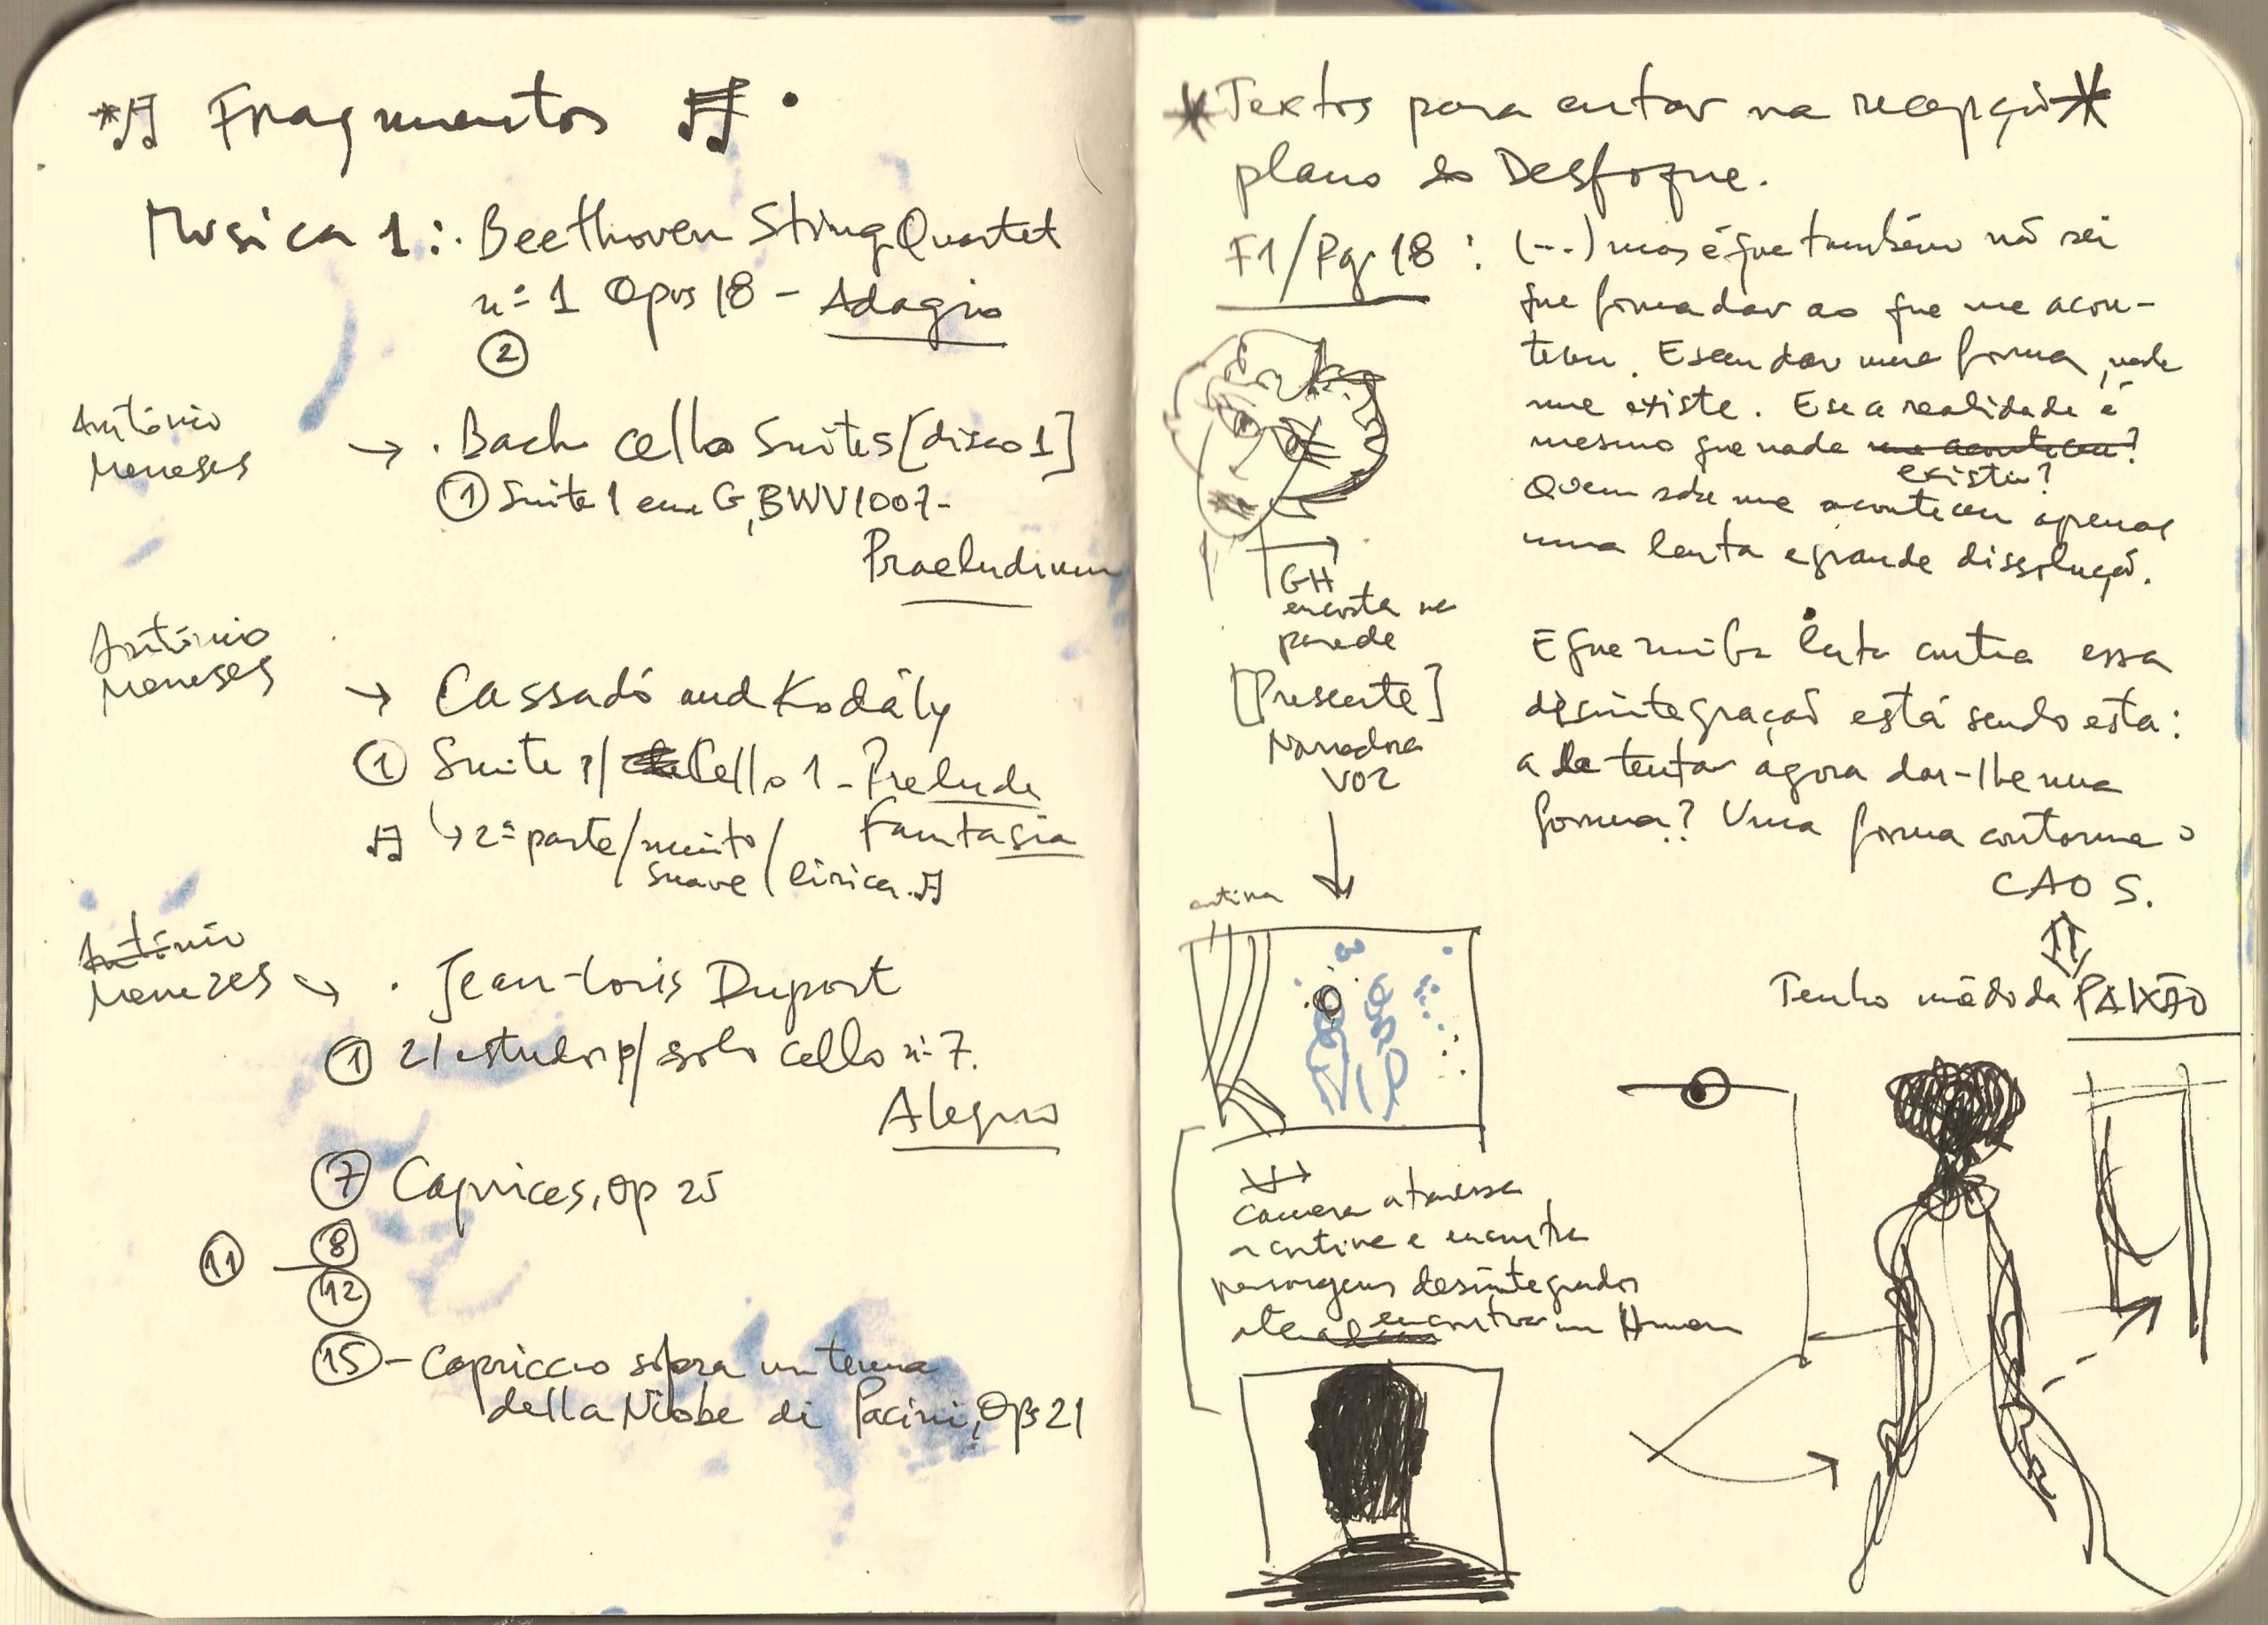 Fragmentos
Musica 1: . Beethoven String Quartet
nº 1 Opus 18 - Adagio
②
António
Meneses
→ . Bach cello Suites [disco 1]
① Suite 1 em G, BWV1007-
Praeludium
António
Meneses
→ Cassadó and Kodály
① Suite p/ Cello 1 - Prelude
Fantasia
↳ 2ª parte/muito/
suave/lírica.
António
Menezes → . Jean-Loris Duport
① 21 estudos p/ solo cello nº 7.
Alegro
⑦ Caprices, op 25
⑪ — ⑧
⑫
⑮ - Capriccio sopra un tema
della Niobe di Pacini, Op 21
* Textos para entrar na recepção *
plano do Desfoque.
F1/Pg. 18 : (...) mas é que também não sei
que forma dar ao que me acon-
teceu. E sem dar uma forma, nada
me existe. E se a realidade é
mesmo que nada me aconteceu?
existiu?
Quem sabe me aconteceu apenas
uma lenta e grande dissolução.
GH
encosta na
parede
[Presente]
Narradora
voz
E que minha luta contra essa
desintegração está sendo esta:
a de tentar agora dar-lhe uma
forma? Uma forma contorna o
CAOS.
Tenho mêdo da PAIXÃO
cortina
camera atravessa
a cortina e encontra
personagens desintegrados
ate encontrar um Homem